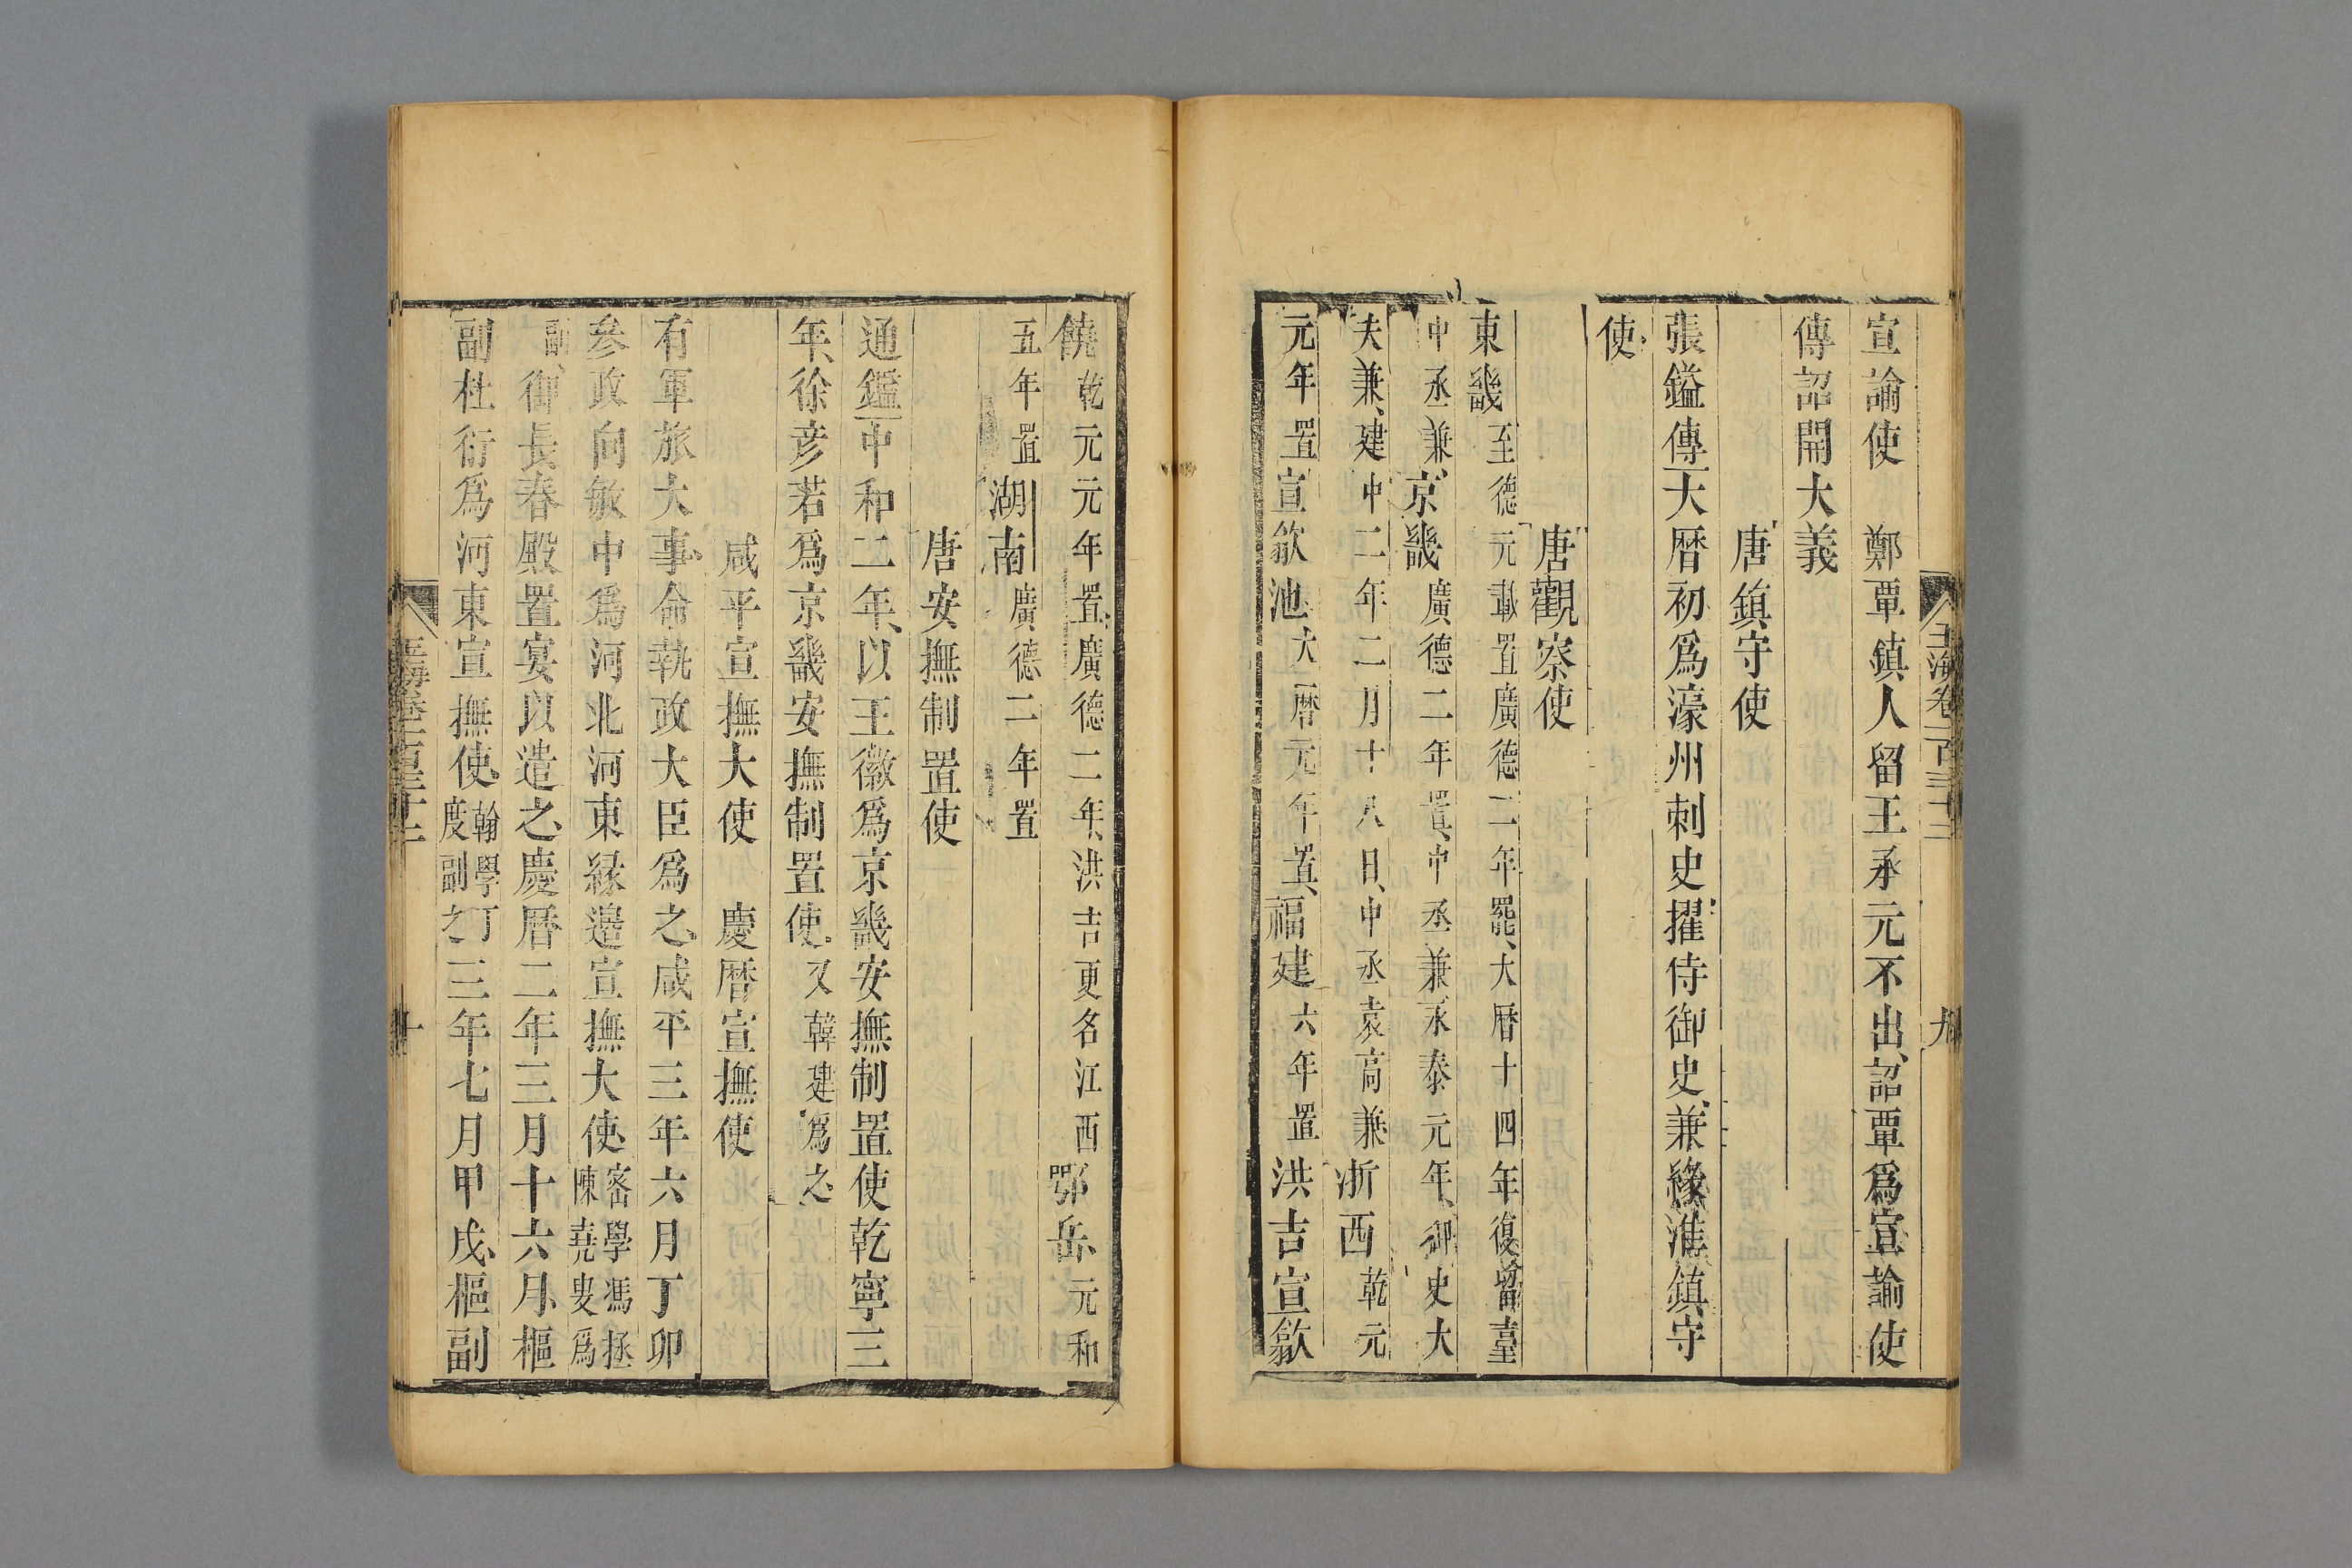 玉海卷一百三十二
九
宣諭使 鄭覃鎮人留王承元不出詔覃爲宣諭使
傳詔開大義
唐鎮守使
張鎰傳大曆初爲濠州刺史擢侍御史兼緣淮鎮守
使
唐觀察使
東畿至德元載置廣德二年罷大曆十四年復留臺
中丞兼京畿廣德二年置中丞兼永泰元年御史大
夫兼建中二年二月十八日中丞袁高兼浙西乾元
元年置宣歙池大曆元年置福建六年置洪吉宣歙
饒乾元元年置廣德二年洪吉更名江西鄂岳元和
五年置湖南廣德二年置
唐安撫制置使
通鑑中和二年以王徽爲京畿安撫制置使乾寧三
年徐彦若爲京畿安撫制置使又韓建爲之
咸平宣撫大使 慶曆宣撫使
有軍旅大事命執政大臣爲之咸平三年六月丁卯
參政向敏中爲河北河東緣邊宣撫大使密學馮拯陳堯叟爲
副御長春殿置宴以遣之慶曆二年三月十六月樞
副杜衍爲河東宣撫使翰學丁度副之三年七月甲戌樞副
玉海卷一百三十二
十